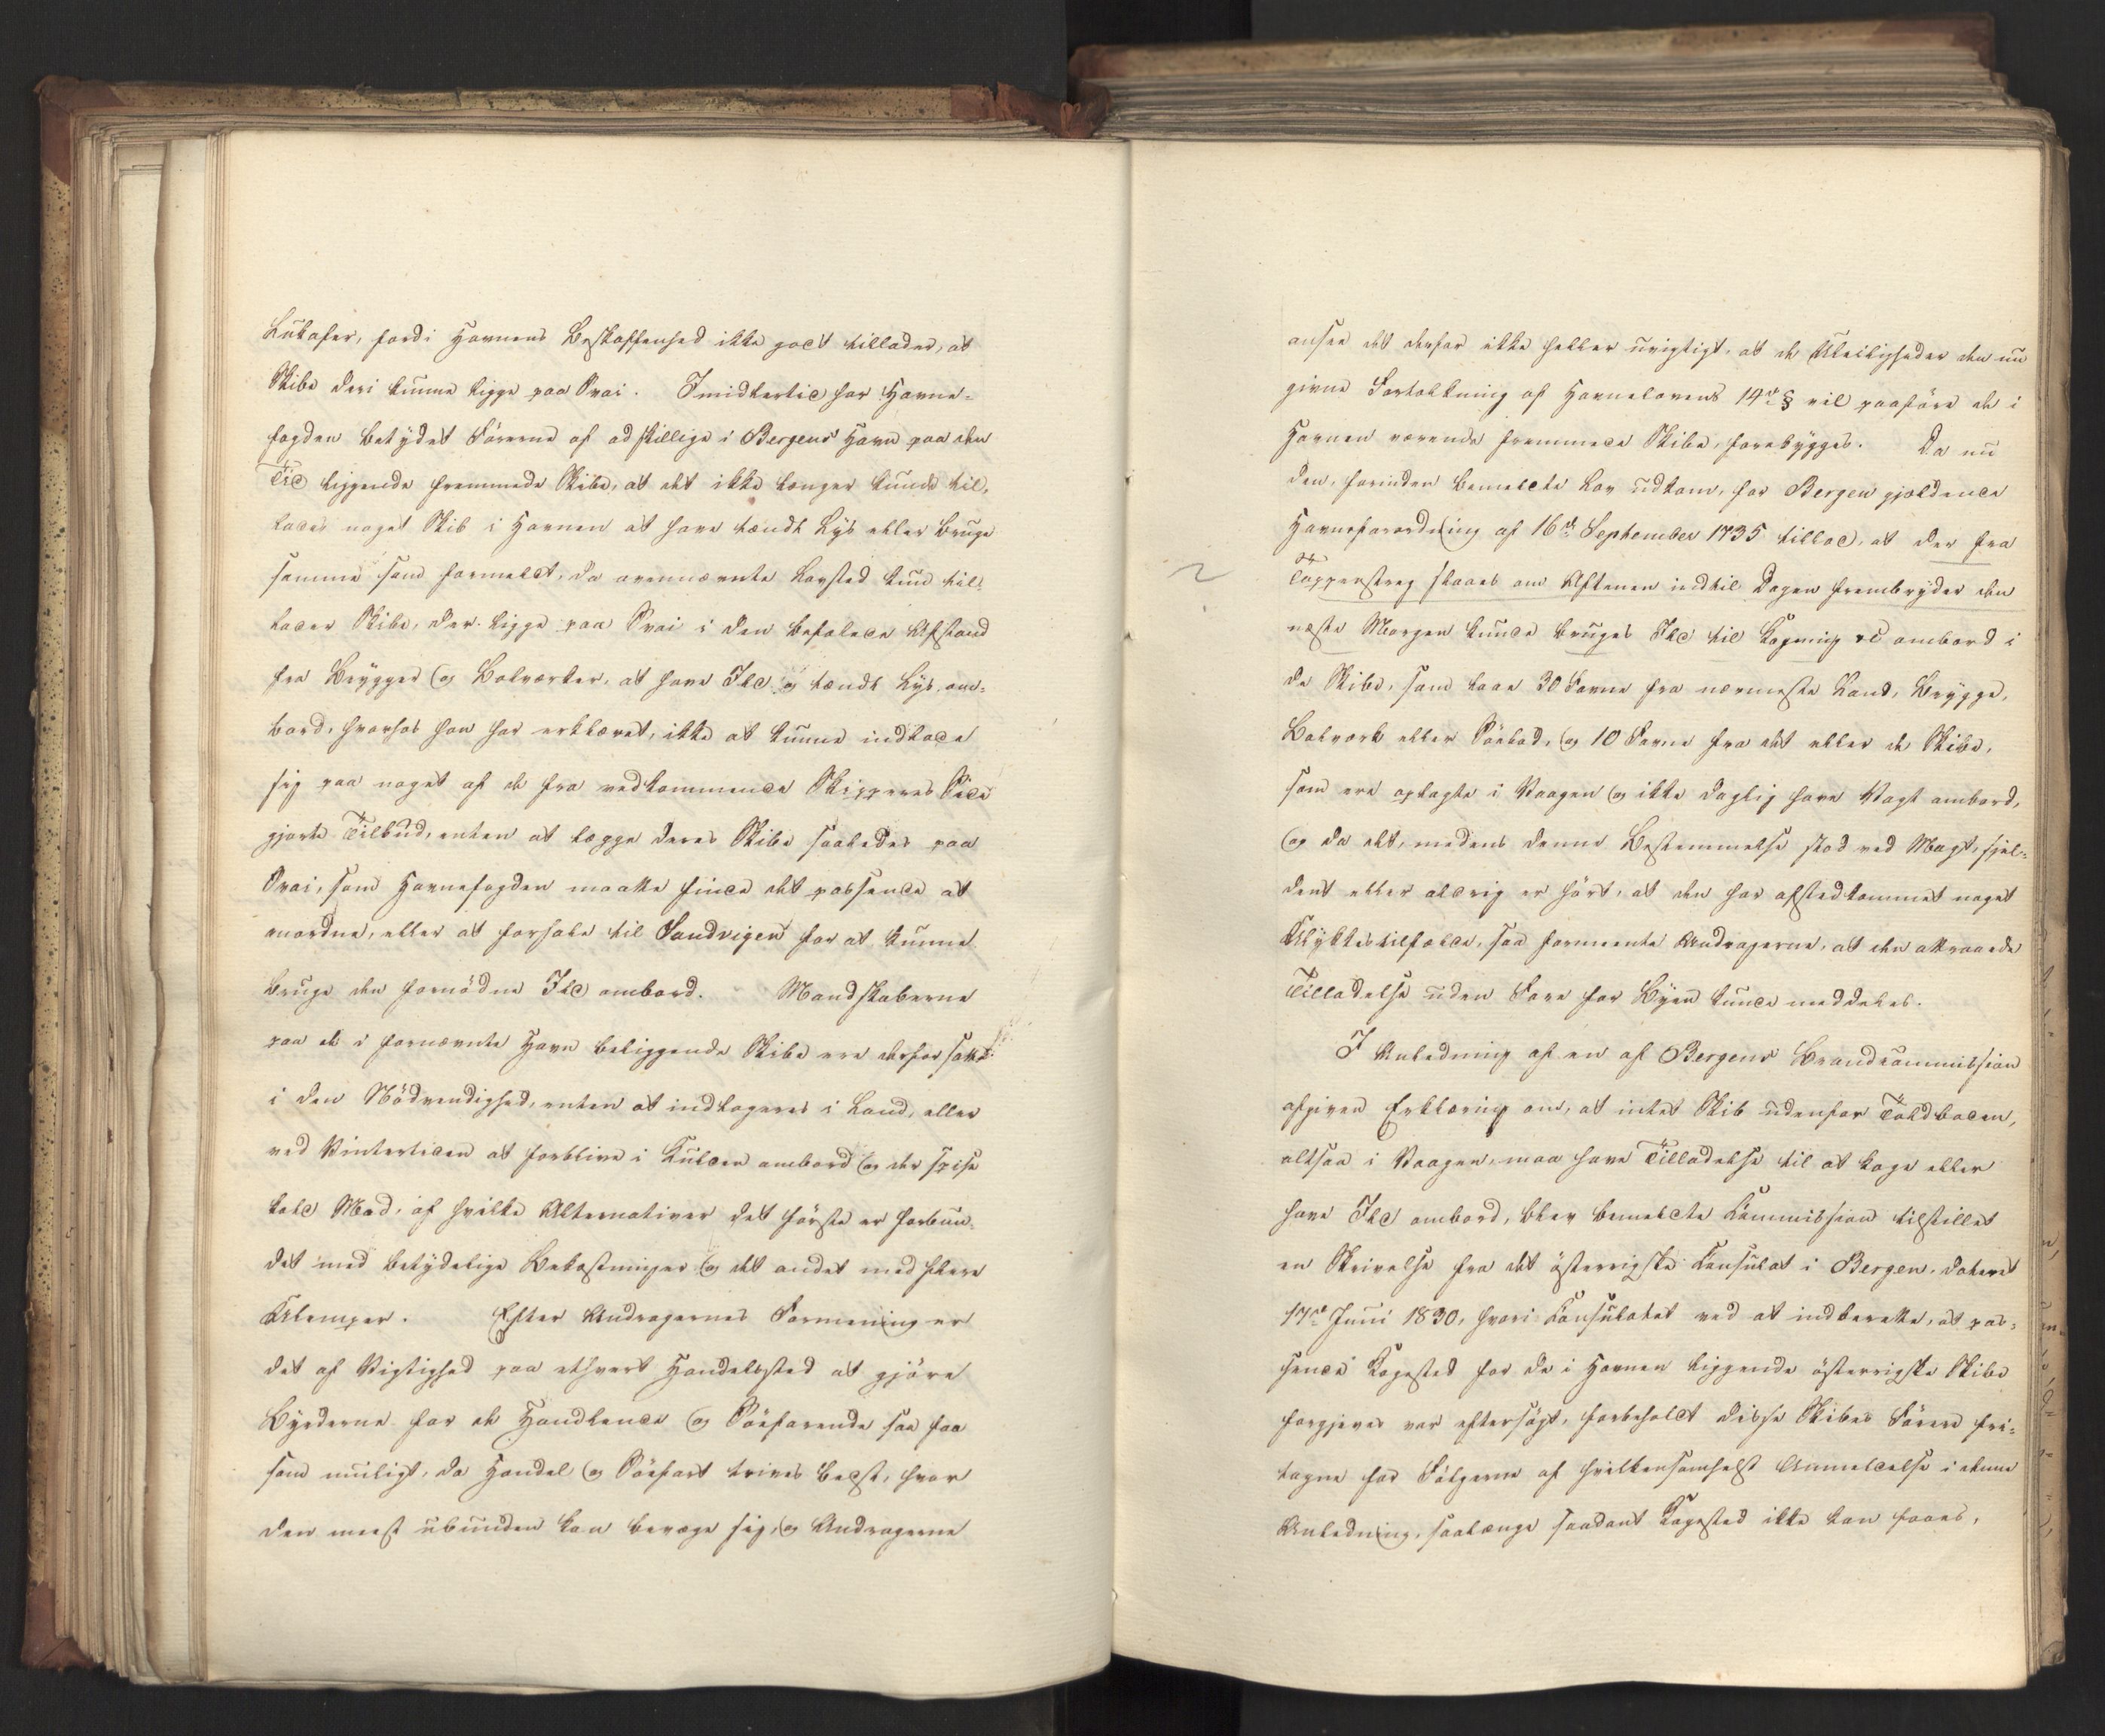 Lukafer, fordi Havnens Beskaffenhed ikke godt tillader, at
Skibe deri kunne ligge paa Svai. Imidlertid har Havne-
fogden betydet Førerne af adskillige i Bergens Havn paa den
Tid liggende fremmede Skibe, at det ikke længer kunde til-
lades noget Skib i Havnen at have tændt Lys eller bruge
samme som formeldt, da ovennævnte Lovsted kun til-
lader Skibe, der ligge paa Svai i den befalede Afstand
fra Brygger og Bolværker, at have Ild og tændt Lys om-
bord, hvorhos han har erklæret, ikke at kunne indlade
sig paa noget af de fra vedkommende Skipperes Side
gjorte Tilbud, enten at lægge deres Skibe saaledes paa
Svai, som Havnefogden maatte finde det passende at
anordne, eller at forhale til Sandvigen for at kunne
bruge den fornødne Ild ombord. Mandskaberne
paa de i fornævnte Havn beliggende Skibe ere derfor satte
i den Nødvendighed, enten at indlogeres i Land, eller
ved Vintertiden at forblive i Kulden ombord og der spise
kold Mad, af hvilke Alternativer det første er forbun-
det med betydelige Bekostninger og det andet med flere
Ulemper. Efter Andragernes Formening er
det af Vigtighed paa ethvert Handelssted at gjøre
Byrderne for de Handlende og Søefarende saa faa
som muligt, da Handel og Søefart trives bedst, hvor
den meest ubunden kan bevæge sig, og Andragerne
ansee det derfor ikke heller uvigtigt, at de Uleiligheder den nu
givne Fortolkning af Havnelovens 14de § vil paaføre de i
Havnen værende fremmede Skibe, forebygges. Da nu
den, forinden bemeldte Lov udkom, for Bergen gjældende
Havneforordning af 16de September 1735 tillod, at der fra
Tappenstreg slaaes om Aftenen indtil Dagen frembryder den
næste Morgen kunde bruges Ild til Kogning &c ombord i
de Skibe, som laae 30 Favne fra nærmeste Land, Brygge,
Bolværk eller Søebod, og 10 Favne fra det eller de Skibe,
som ere oplagte i Vaagen og ikke daglig have Vagt ombord,
og da det, medens denne Bestemmelse stod ved Magt, sjel-
dent eller aldrig er hørt, at den har afstedkommet noget
Ulykkestilfælde, saa formeente Andragerne, at den attraaede
Tilladelse uden Fare for Byen kunde meddeles.
I Anledning af en af Bergens Brandcommission
afgiven Erklæring om, at intet Skib udenfor Toldboden,
altsaa i Vaagen, maa have Tilladelse til at koge eller
have Ild ombord, blev bemeldte Commission tilstillet
en Skrivelse fra det østerrigske Consulat i Bergen, dateret
17de Juni 1830, hvori Consulatet ved at indberette, at pas-
sende Kogested for de i Havnen liggende østerrigske Skibe
forgjeves var eftersøgt, forbeholdt disse Skibes Førere fri-
tagne for Følgerne af hvilkensomhelst Anmeldelse i denne
Anledning, saalænge saadant Kogested ikke kan faaes,